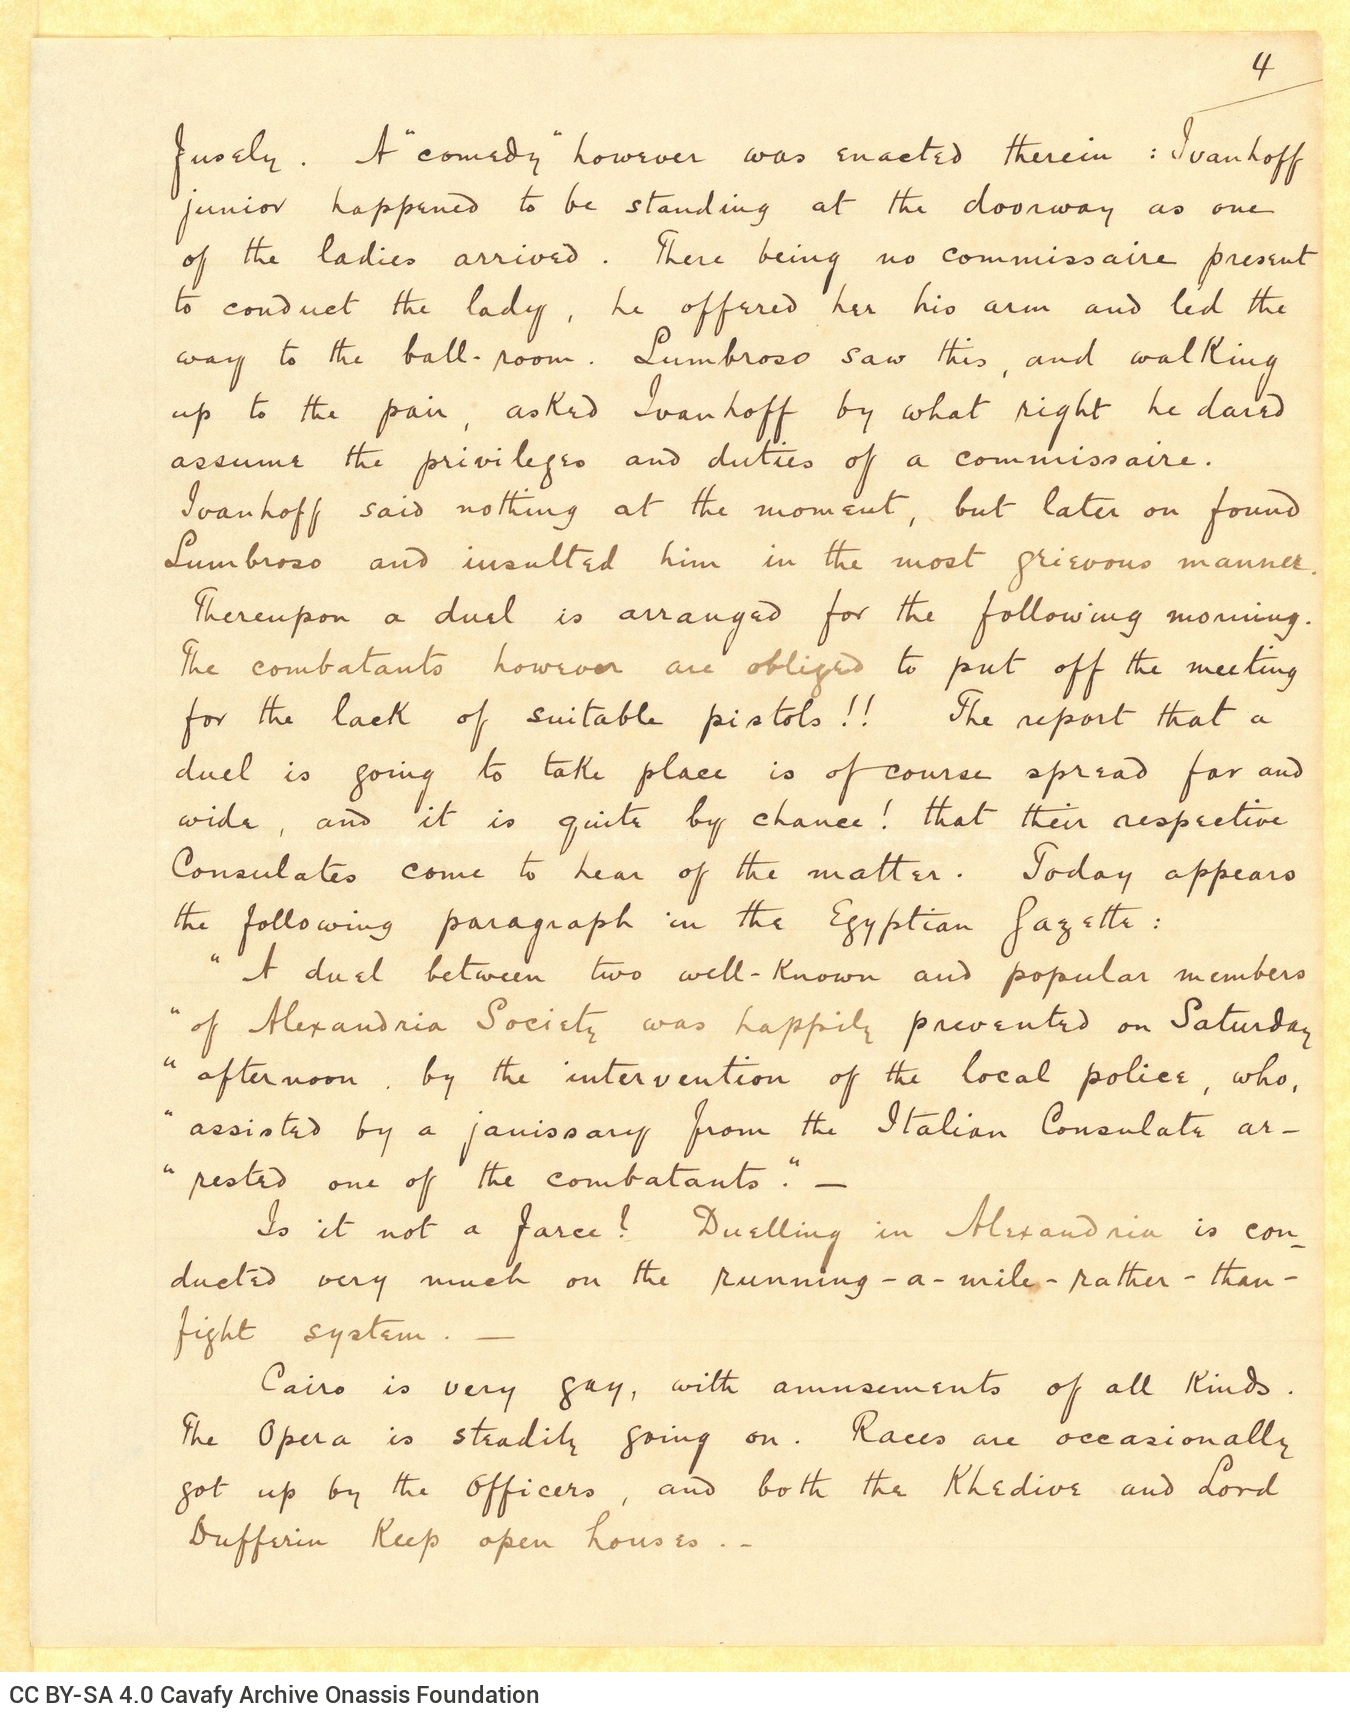 4
fusely. A "comedy" however was enacted therein : Ivanhoff
junior happened to be standing at the doorway as one
of the ladies arrived. There being no commissaire present
to conduct the lady, he offered her his arm and led the
way to the ball-room. Lumbroso saw this, and walking
up to the pair, asked Ivanhoff by what right he dared
assume the privileges and duties of a commissaire.
Ivanhoff said nothing at the moment, but later on found
Lumbroso and insulted him in the most grievous manner.
Thereupon a duel is arranged for the following morning.
The combatants however are obliged to put off the meeting
for the lack of suitable pistols!! The report that a
duel is going to take place is of course spread far and
wide, and it is quite by chance! that their respective
Consulates come to hear of the matter. Today appears
the following paragraph in the Egyptian Gazette :
" A duel between two well-known and popular members
" of Alexandria Society was happily prevented on Saturday
" afternoon, by the intervention of the local police, who,
" assisted by a janissary from the Italian Consulate ar-
" rested one of the combatants." —
Is it not a farce! Duelling in Alexandria is con-
ducted very much on the running-a-mile-rather-than-
fight system. —
Cairo is very gay, with amusements of all kinds.
The Opera is steadily going on. Races are occasionally
got up by the Officers, and both the Khedive and Lord
Dufferin keep open houses. -
CC BY-SA 4.0 Cavafy Archive Onassis Foundation